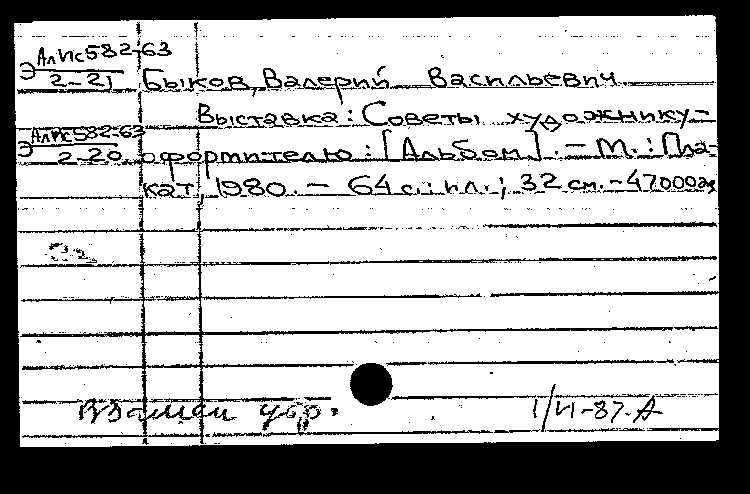 АлИс582-63
Э 2-21 Быков, Валерий Васильевич
Выставка: Советы художнику-
АлИс582-63
Э 2-20 оформителю: [Альбом]. - М.: Пла-
кат, 1980. - 64 с.: ил.; 32 см. - 47000э
Взамен утр.
1/VI-87-А